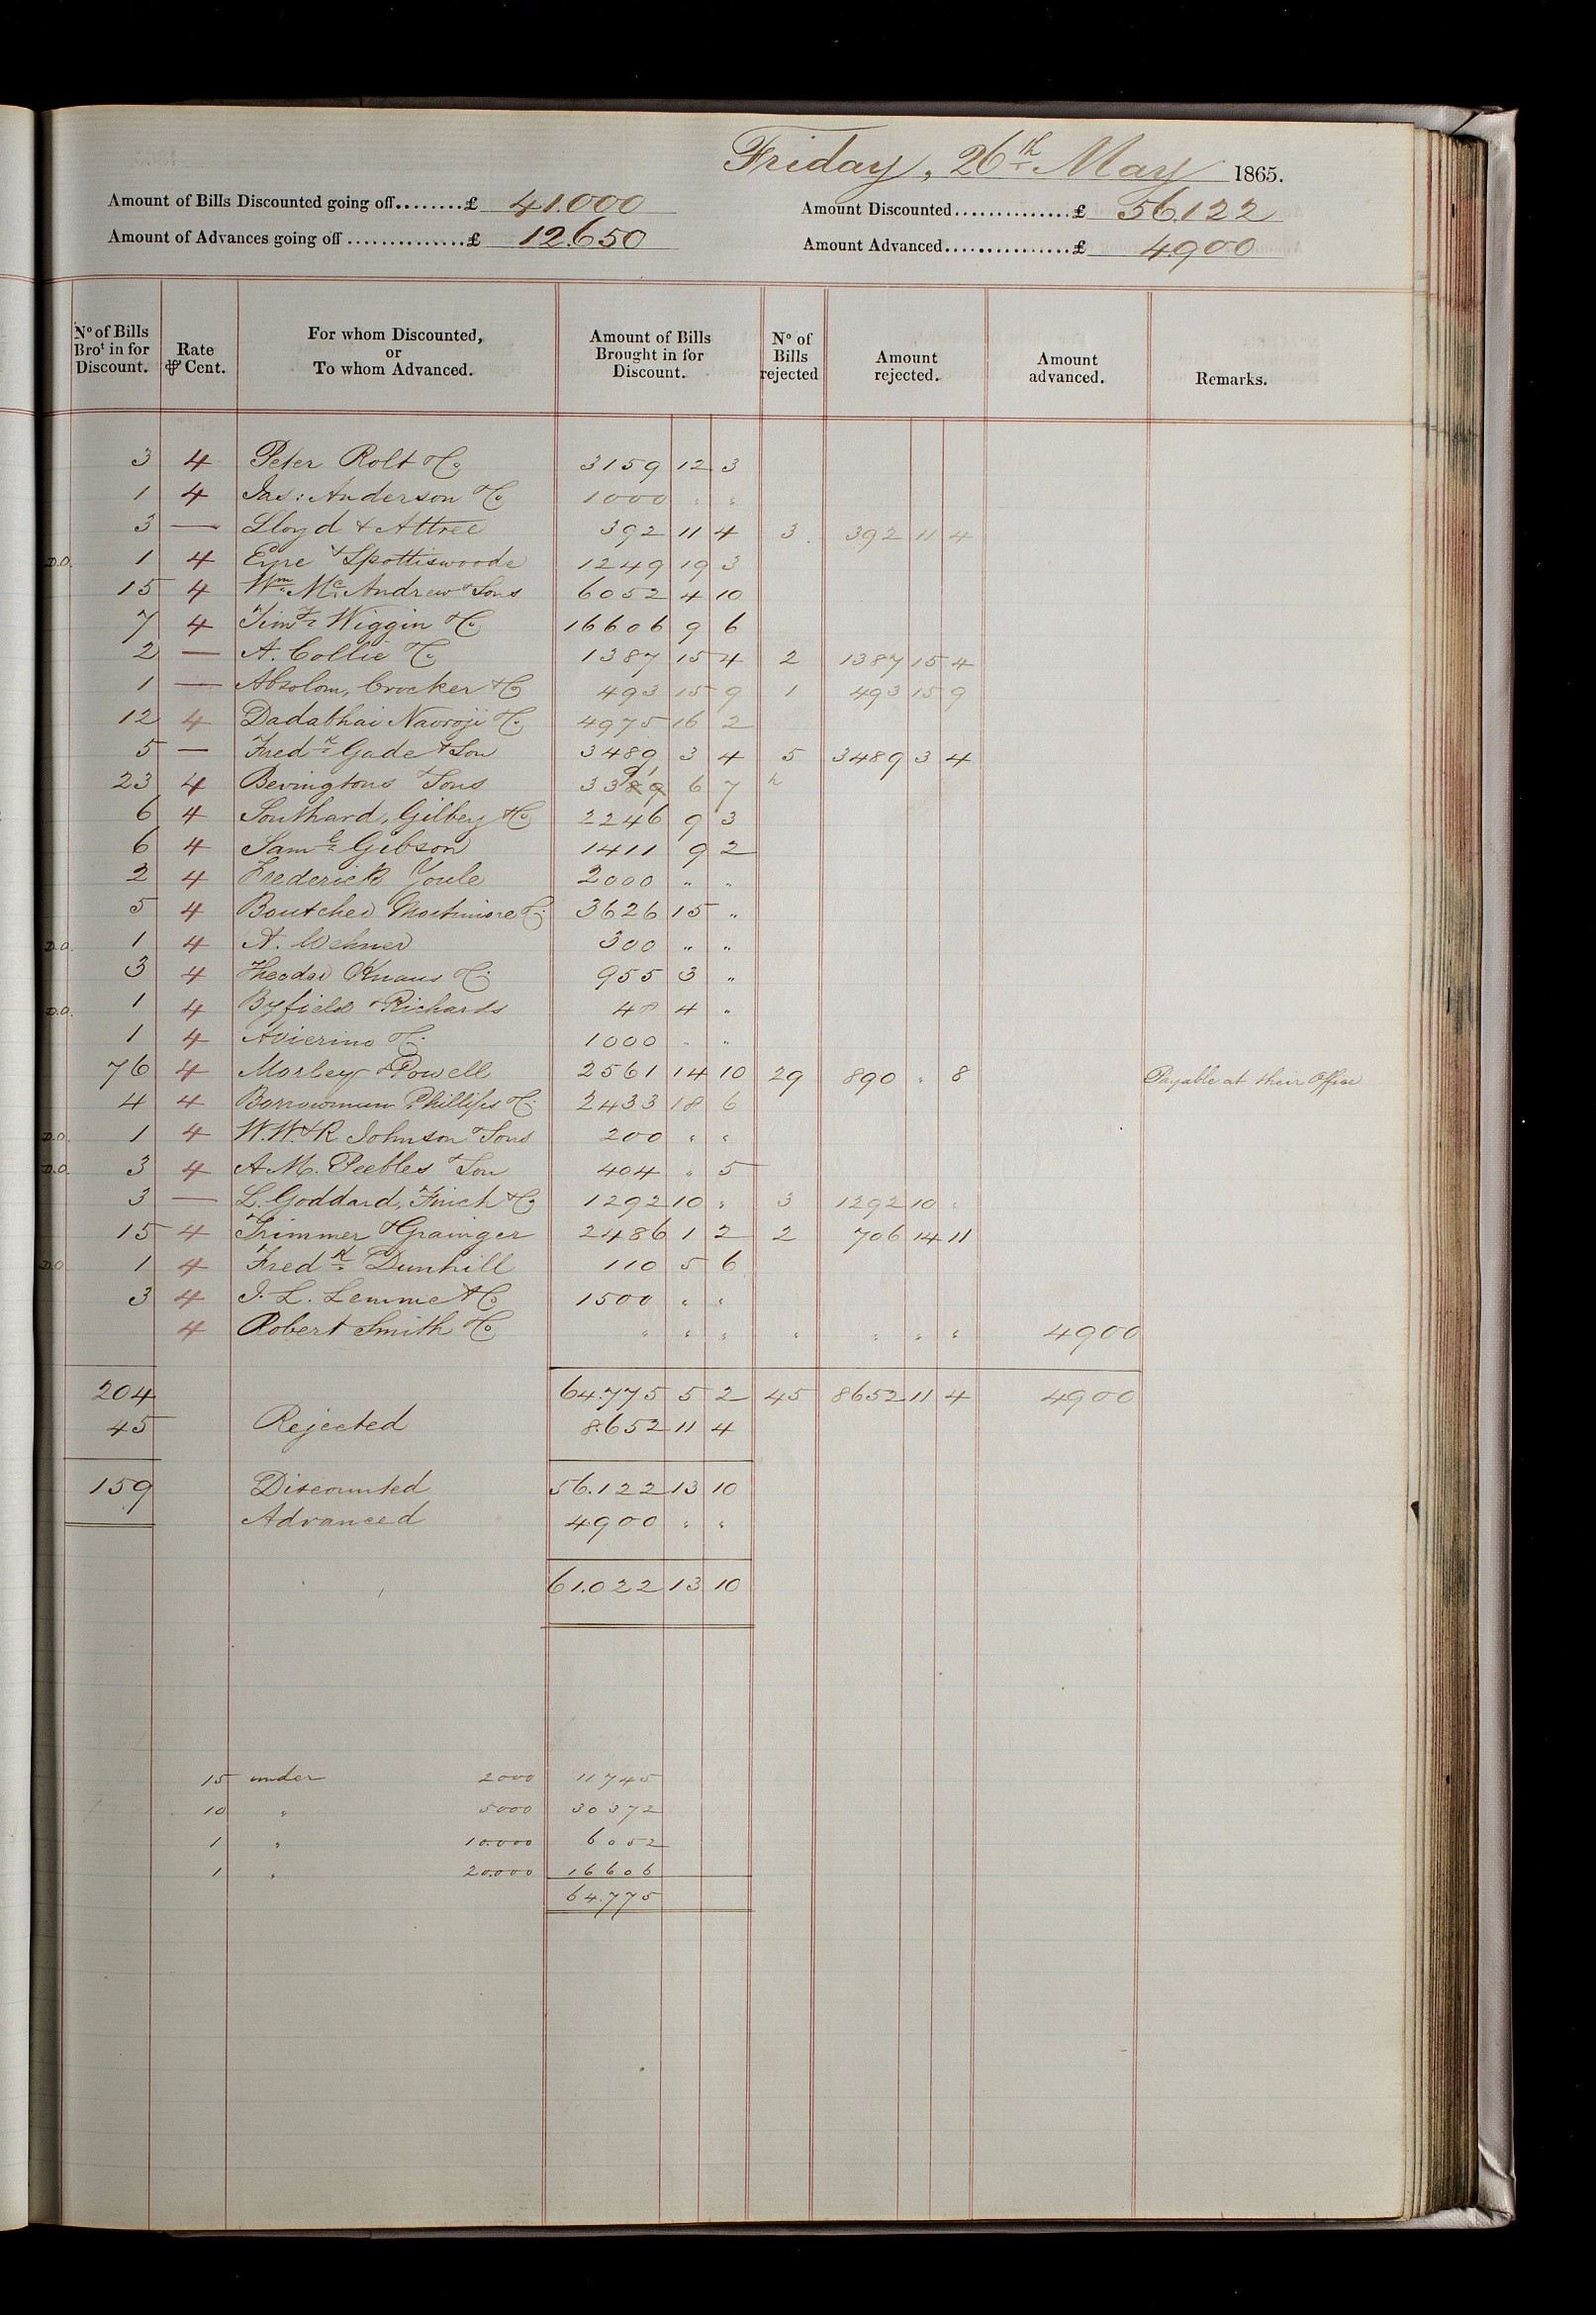 Friday, 26th May 1865.
Amount of Bills Discounted going off........£ 41.000
Amount Discounted..............£ 56.122
Amount of Advances going off..............£ 12.650
Amount Advanced................£ 4.900
No of Bills Brot in for Discount. Rate ⅌ Cent. For whom Discounted, or To whom Advanced. Amount of Bills Brought in for Discount. No of Bills rejected Amount rejected. Amount advanced. Remarks.
3 4 Peter Rolt & Co 3159 12 3
1 4 Jas: Anderson & Co 1000 " "
3 — Lloyd & Attree 392 11 4 3 392 11 4
D.O. 1 4 Eyre & Spottiswoode 1249 19 3
15 4 Wm McAndrew & Sons 6052 4 10
7 4 Timy Wiggin & Co 16606 9 6
2 — A. Collie & Co 1387 15 4 2 1387 15 4
1 — Absolom, Crocker & Co 493 15 9 1 493 15 9
12 4 Dadabhai Naoroji & Co 4975 16 2
5 — Fredk Gade & Son 3489 3 4 5 3489 3 4
23 4 Bevingtons & Sons 3391 6 7
6 4 Southard, Gilbey & Co 2246 9 3
6 4 Saml Gibson 1411 9 2
2 4 Frederick Youle 2000 " "
5 4 Boutcher Mortimore & Co 3626 15 "
D.O. 1 4 A. Wehner 300 " "
3 4 Theodor Knaus & Co 955 3 "
D.O. 1 4 Byfield & Richards 48 4 "
1 4 Avierino & Co 1000 " "
76 4 Morley & Powell 2561 14 10 29 890 " 8 Payable at their Office
4 4 Borrowman Phillips & Co 2433 18 6
D.O. 1 4 W.W & R Johnson & Sons 200 " "
D.O. 3 4 A.M. Peebles & Son 404 " 5
3 — L. Goddard, Finch & Co 1292 10 " 3 1292 10 "
15 4 Trimmer & Grainger 2486 1 2 2 706 14 11
D.O. 1 4 Fredk Dunhill 110 5 6
3 4 J. L. Lemme & Co 1500 " "
4 Robert Smith & Co " " " " " " " 4900
204 64.775 5 2 45 8652 11 4 4900
45 Rejected 8.652 11 4
159 Discounted 56.122 13 10
Advanced 4900 " "
61.022 13 10
15 under 2000 11745
10 " 5000 30372
1 " 10.000 6052
1 " 20.000 16606
64.775